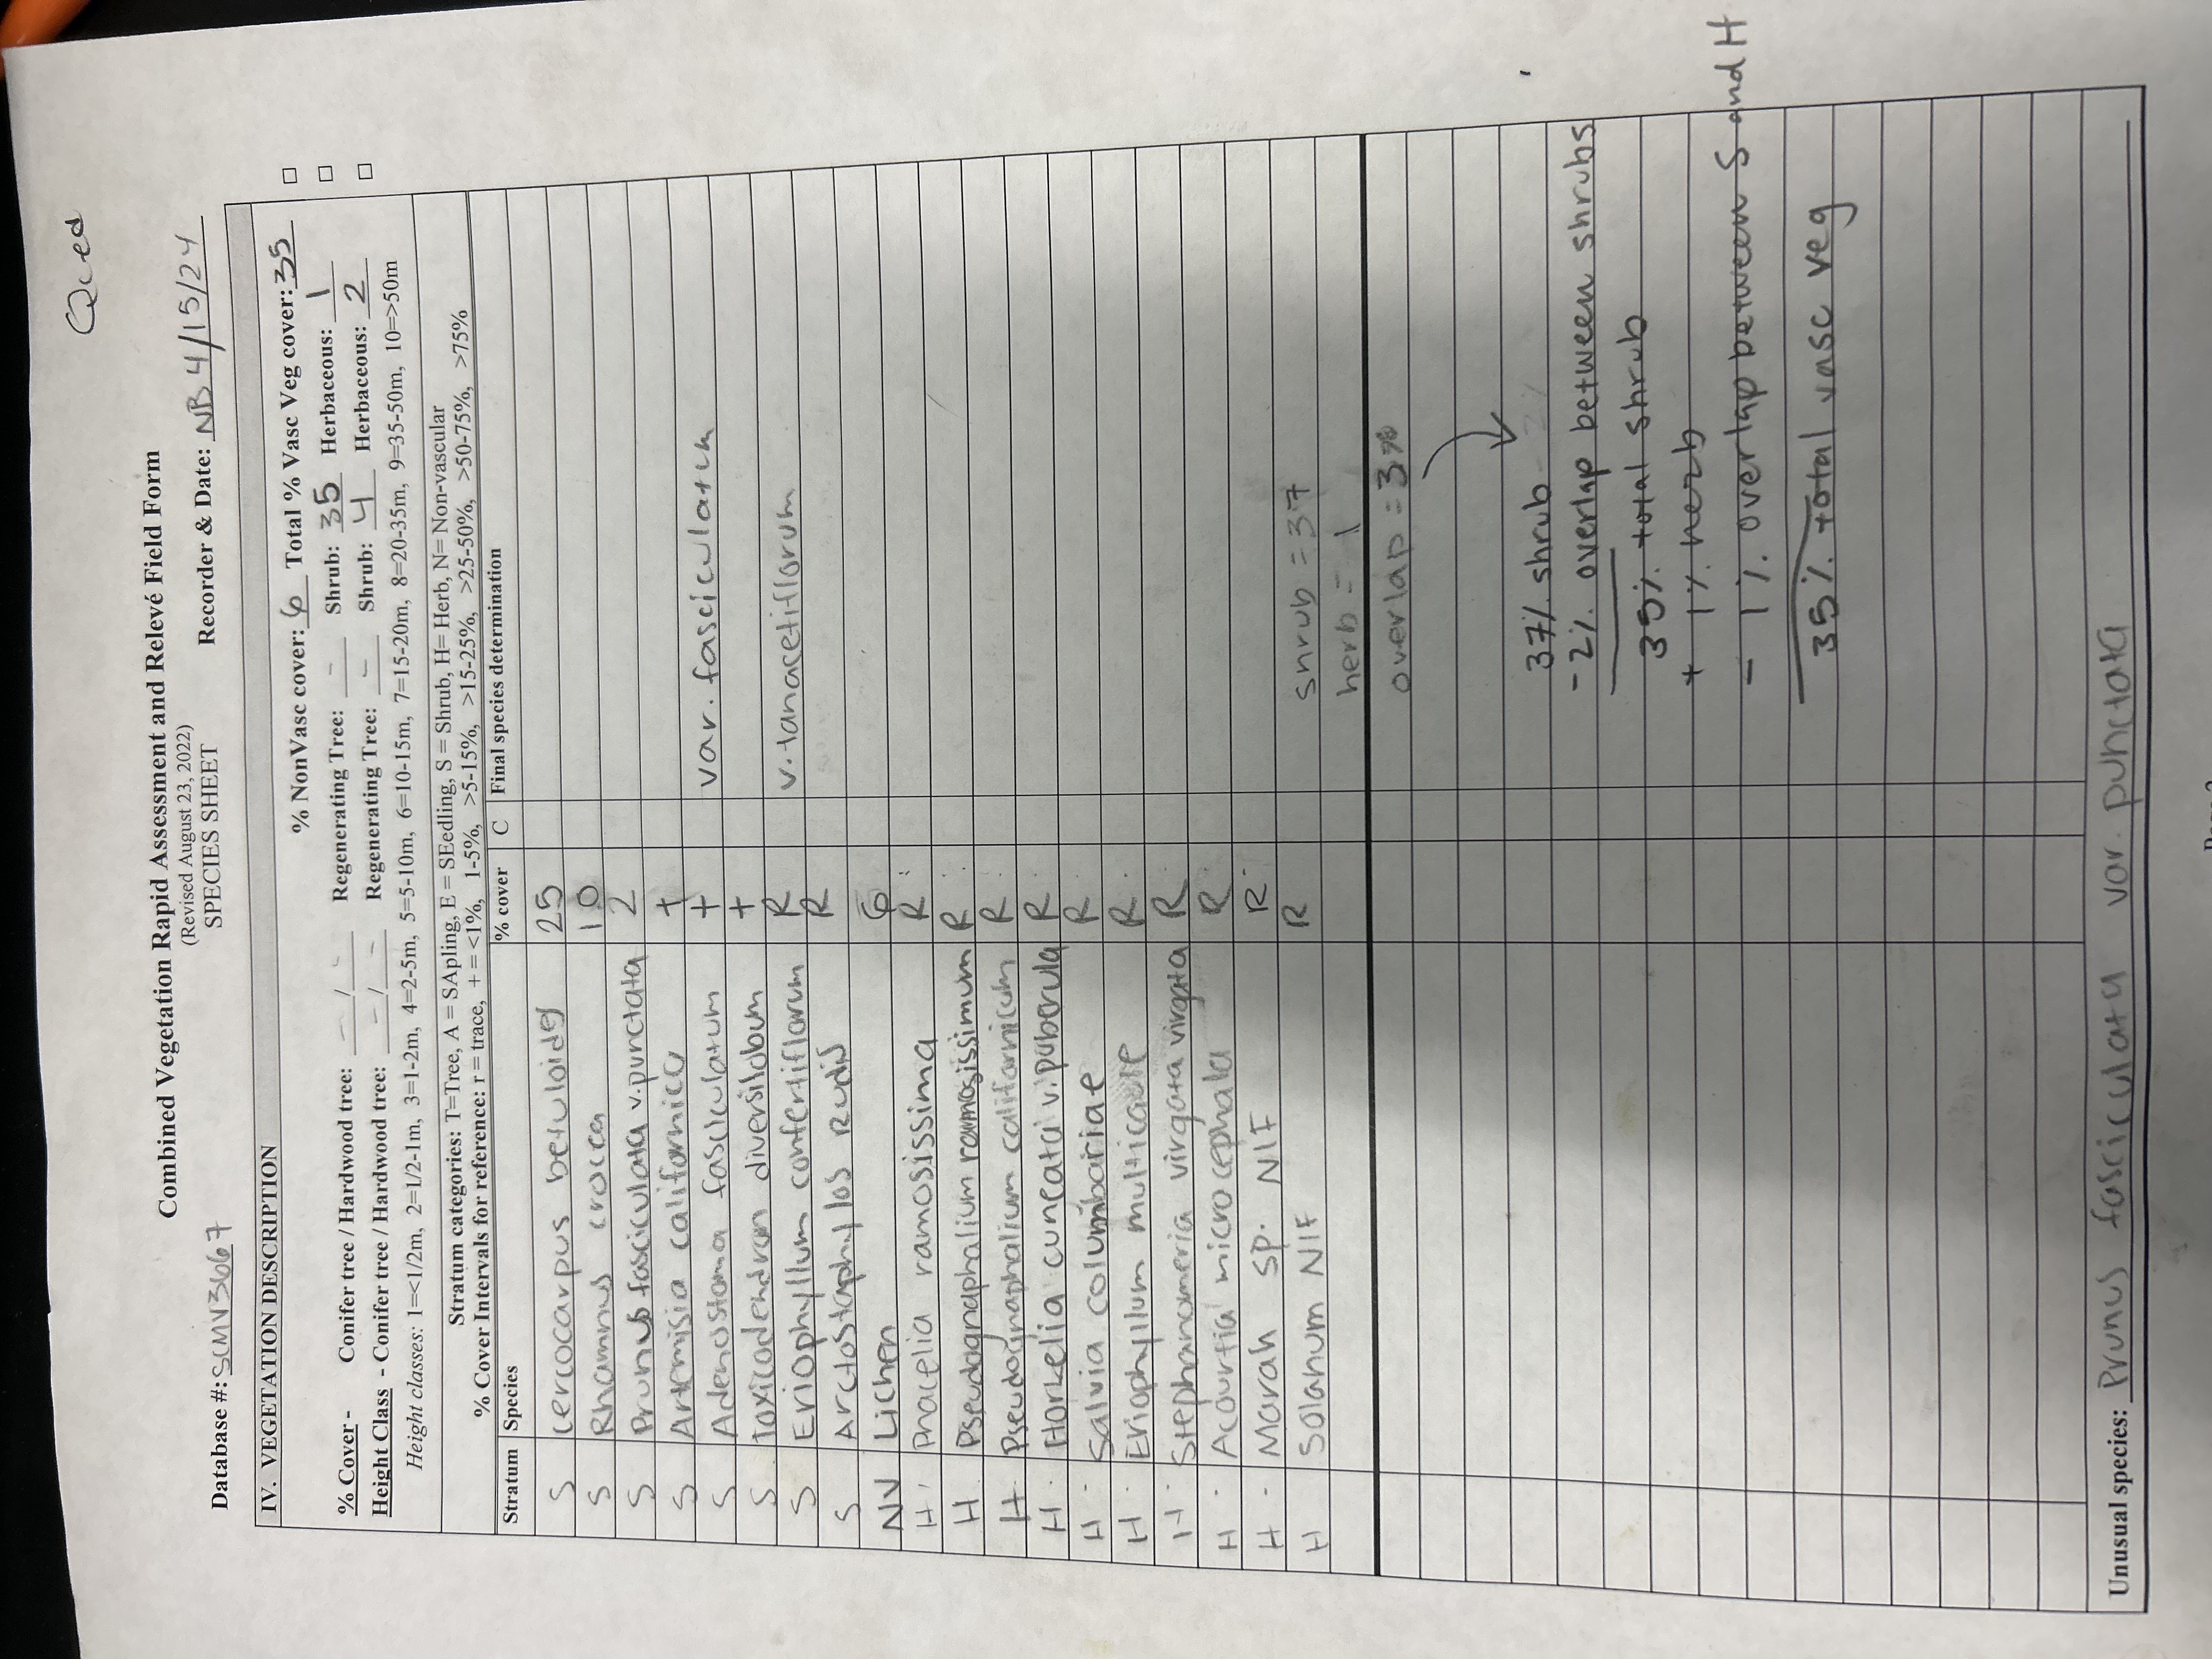 QCed
Combined Vegetation Rapid Assessment and Relevé Field Form
(Revised August 23, 2022)
SPECIES SHEET
Database #: SCMV3667 Recorder & Date: NB 4/15/24
IV. VEGETATION DESCRIPTION
% NonVasc cover: 6 Total % Vasc Veg cover: 35 □
% Cover - Conifer tree / Hardwood tree: - / - Regenerating Tree: - Shrub: 35 Herbaceous: 1 □
Height Class - Conifer tree / Hardwood tree: - / - Regenerating Tree: - Shrub: 4 Herbaceous: 2 □
Height classes: 1=<1/2m, 2=1/2-1m, 3=1-2m, 4=2-5m, 5=5-10m, 6=10-15m, 7=15-20m, 8=20-35m, 9=35-50m, 10=>50m
Stratum categories: T=Tree, A = SApling, E = SEedling, S = Shrub, H= Herb, N= Non-vascular
% Cover Intervals for reference: r = trace, + = <1%, 1-5%, >5-15%, >15-25%, >25-50%, >50-75%, >75%
Stratum Species % cover C Final species determination
S Cercocarpus betuloides 25
S Rhamnus crocea 10
S Prunus fasciculata v. punctata 2
S Artemisia californica +
S Adenostoma fasciculatum + var. fasciculatum
S Toxicodendron diversilobum +
S Eriophyllum confertiflorum R v. tanacetiflorum
S Arctostaphylos Rudis R
NV Lichen 6
H. Phacelia ramosissima R
H. Pseudognaphalium ramosissimum R
H. Pseudognaphalium californicum R
H. Horkelia cuneata v. puberula R
H. Salvia columbariae R
H. Eriophyllum multicaule R
H. Stephanomeria virgata virgata R
H. Acourtia microcephala R
H. Marah sp. NIF R
H Solanum NIF R
shrub = 37
herb = 1
overlap = 3%
37% shrub
- 2% overlap between shrubs
35% total shrub
+ 1% herb
- 1% overlap between S and H
35% total vasc veg
Unusual species: Prunus fasciculata var. punctata